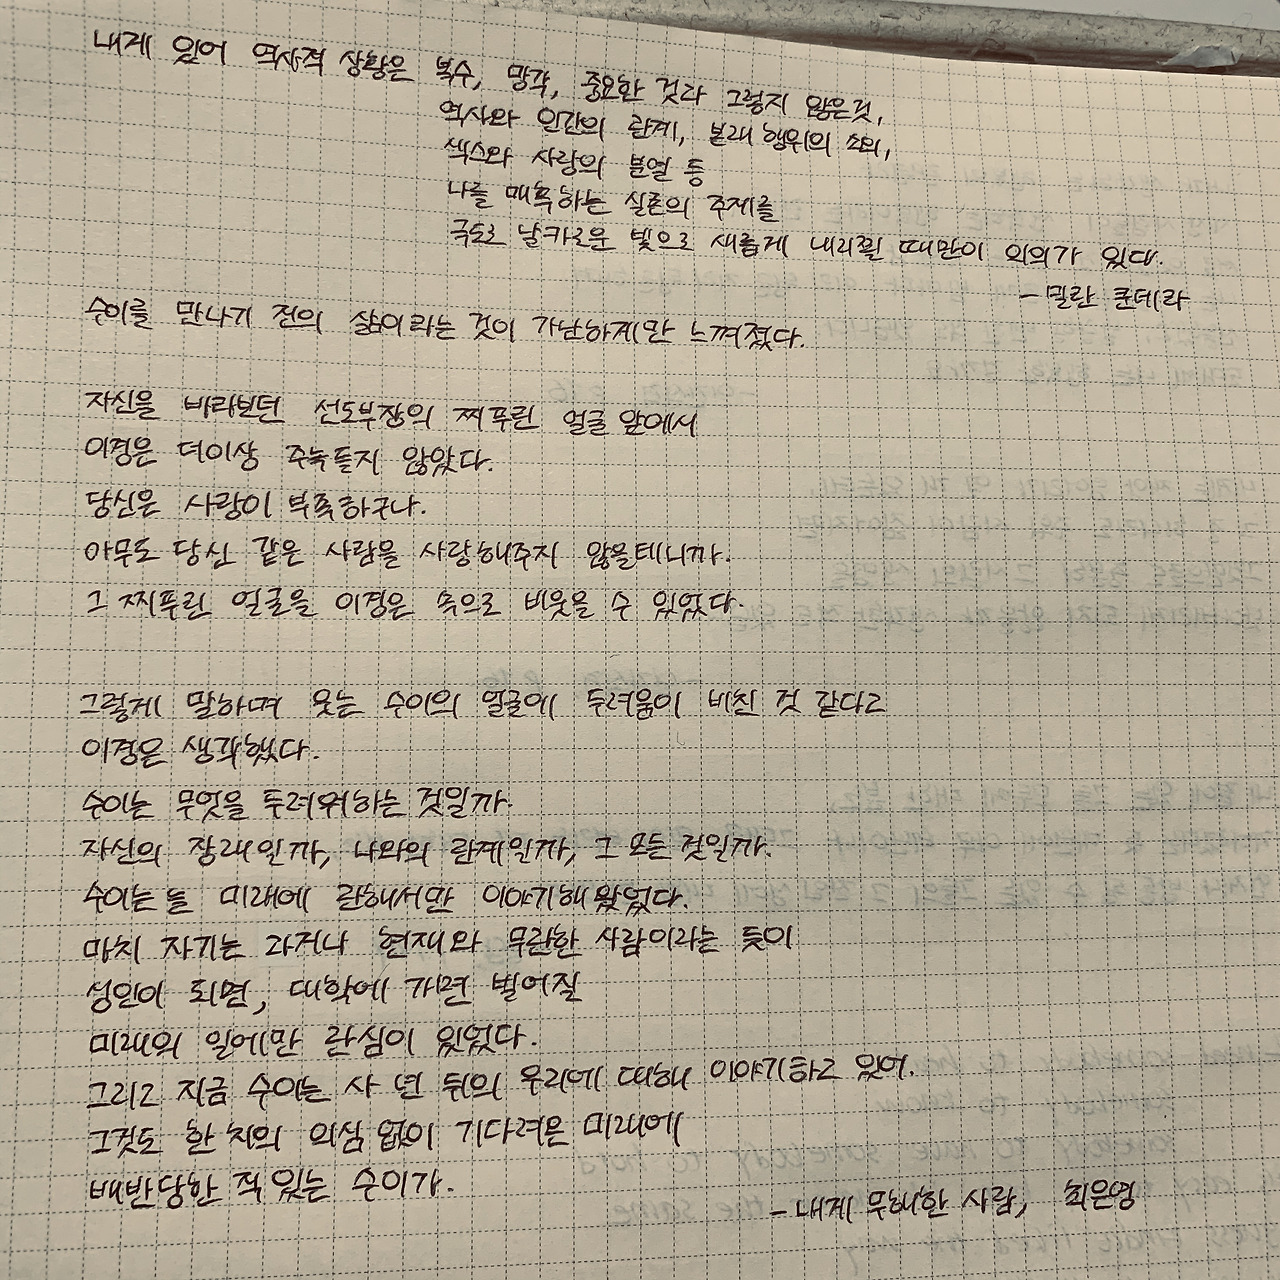 내게 있어 역사적 상황은 복수, 망각, 중요한 것과 그렇지 않은것,
역사와 인간의 관계, 본래 행위의 소외,
섹스와 사랑의 분열 등
나를 매혹하는 실존의 주제를
극도로 날카로운 빛으로 새롭게 내리쬘 때만이 의의가 있다.
- 밀란 쿤데라
수이를 만나기 전의 삶이라는 것이 가난하게만 느껴졌다.
자신을 바라보던 선도부장의 찌푸린 얼굴 앞에서
이경은 더이상 주눅들지 않았다.
당신은 사랑이 부족하구나.
아무도 당신 같은 사람을 사랑해주지 않을테니까.
그 찌푸린 얼굴을 이경은 속으로 비웃을 수 있었다.
그렇게 말하며 웃는 수이의 얼굴에 두려움이 비친 것 같다고
이경은 생각했다.
수이는 무엇을 두려워하는 것일까.
자신의 장래일까, 나와의 관계일까, 그 모든 것일까.
수이는 늘 미래에 관해서만 이야기해왔었다.
마치 자기는 과거나 현재와 무관한 사람이라는 듯이
성인이 되면, 대학에 가면 벌어질
미래의 일에만 관심이 있었다.
그리고 지금 수이는 사 년 뒤의 우리에 대해 이야기하고 있어.
그것도 한 치의 의심 없이 기다려온 미래에
배반당한 적 있는 수이가.
- 내게 무해한 사람, 최은영